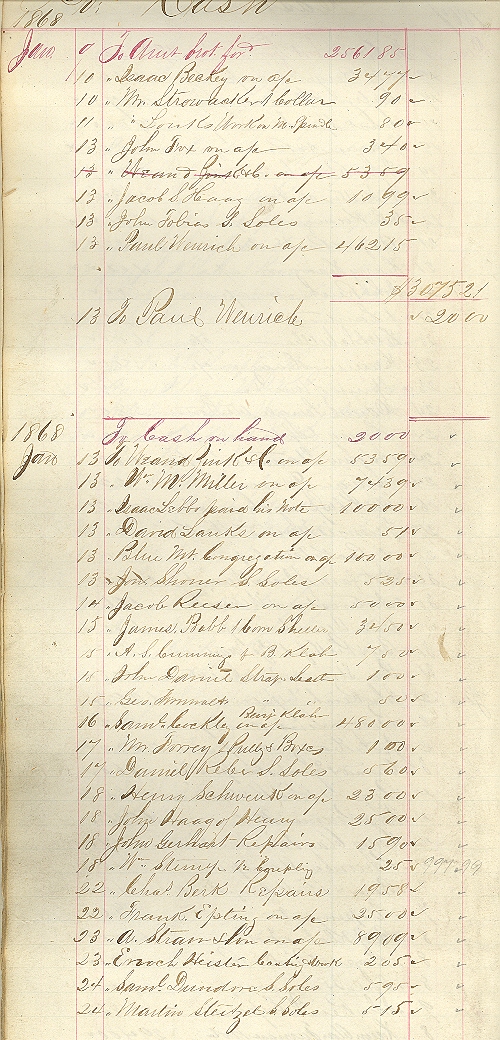 1868 Cash
Jan. 9 To Amt brot for. 2561 85
10 " Isaac Beckey on a/c 34 44
10 " Wm. Strowacker 1 Collar 90
11 " " Louks Work on M. Spindle 80
13 " John Fox on a/c 3 40
13 " and & C. on a/c 53 59
13 " Jacob S. Haag on a/c 10 99
13 " John Tobias S. Soles 35
13 " Paul Wenrich on a/c 462 15
$3075 21
13 To Paul Wenrich 20 00
1868 To Cash on hand 20 00
Jan 13 To and & C. on a/c 53 59
13 " Wm. Mc. Miller on a/c 74 39
13 " Isaac paid his Note 100 00
13 " David Lauks on a/c 51
13 " Blue Mt. Congregation on a/c 100 00
13 " Shoner S. Soles 5 25
14 " Jacob Reeser on a/c 50 00
15 " James Babb 1 Corn Sheller 34 50
15 " A. S. Cummings f B. Klahr 7 50
15 " John Daniel Strap Leath 1 00
15 " Geo. " " 50
Benj Klahr
16 " Saml. on a/c 480 00
17 " Wm. Torrey 1 Pully & Boxes 1 00
17 " Daniel Reber S. Soles 5 60
18 " Henry Schwenk on a/c 23 00
18 " John Haag of Henry 25 00
18 " John Gerhart Repairs 15 90
18 " Wm Stump Coupling 25 997 99
22 " Chas. Berk Repairs 19 58
22 " Frank Epting on a/c 25 00
23 " A. Straus & Son on a/c 89 09
23 " Enoch Heister Casting & work 2 05
24 " Saml. Dundore S. Soles 5 95
24 " Martin Steitzel S. Soles 5 15